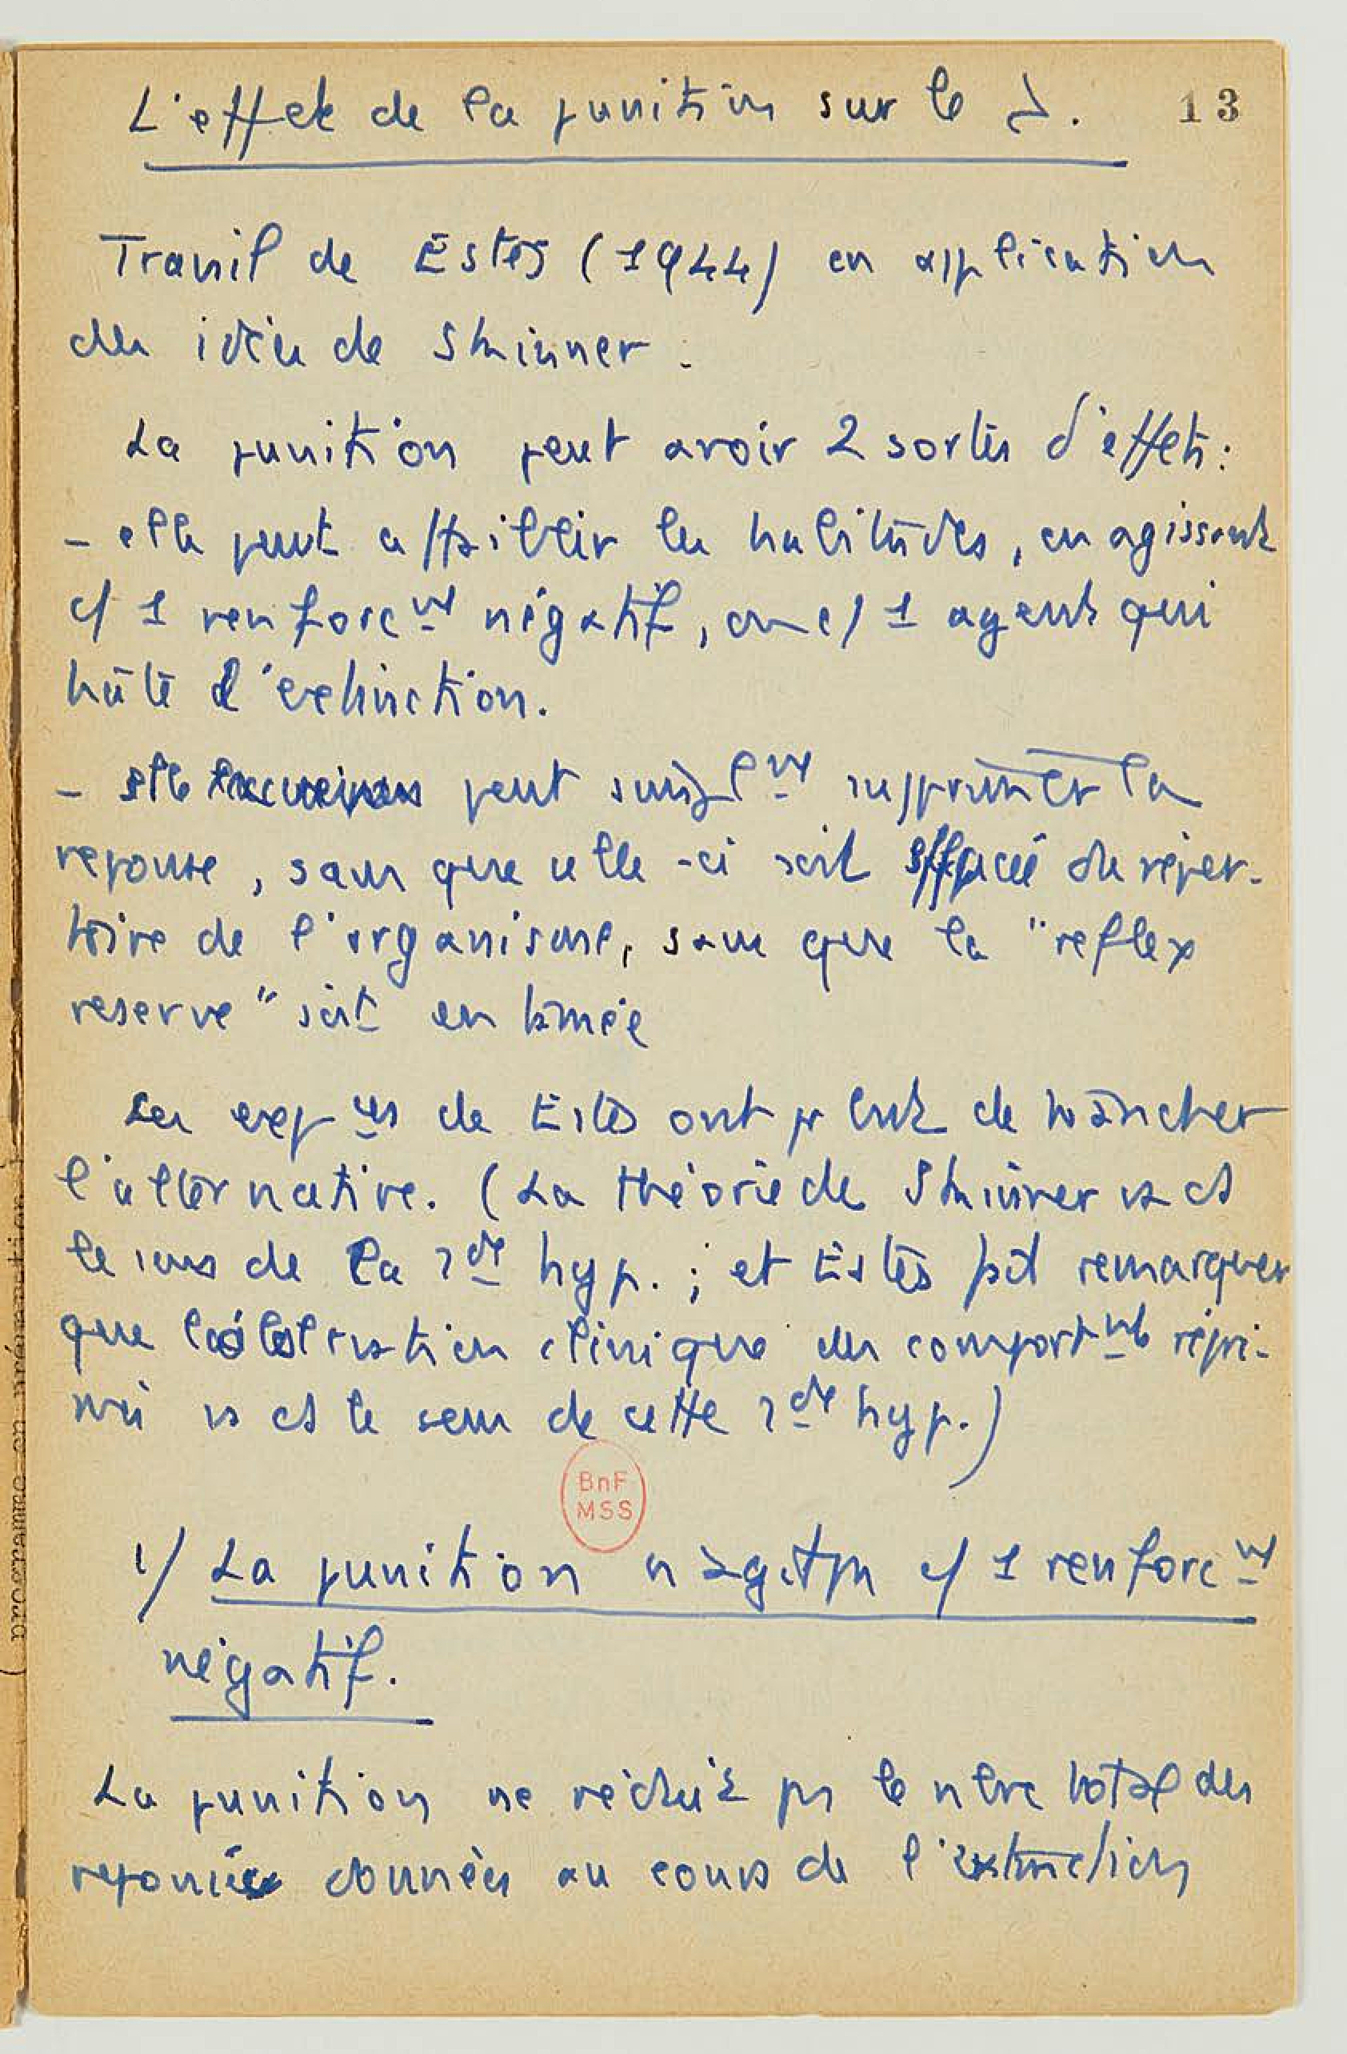 L'effet de la punition sur le
13
Travail de Estes (1944) en application
des idées de Skinner.
La punition peut avoir 2 sortes d'effets:
- elle peut affaiblir les habitudes, en agissant
c/ 1 renforcnt négatif, ou c/ 1 agent qui
hâte l'extinction.
- elle peut simplnt supprimer la
reponse, sans que celle-ci soit effacée du réper-
toire de l'organisme, sans que la "reflex
reserve" soit entamée
Les expces de Estes ont pr but de trancher
l'alternative. (La théorie de Skinner va ds
le sens de la 2de hyp. ; et Estes fait remarquer
que l'observation clinique des comportnts répri-
més va ds le sens de cette 2de hyp.)
BnF
MSS
1/ La punition n'agit pas c/ 1 renforcnt
négatif.
La punition ne réduit pas le nbre total des
reponses données au cours de l'extinction
(programme en préparation)